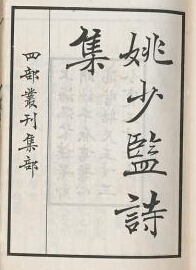 姚少監詩
集
四部叢刊集部